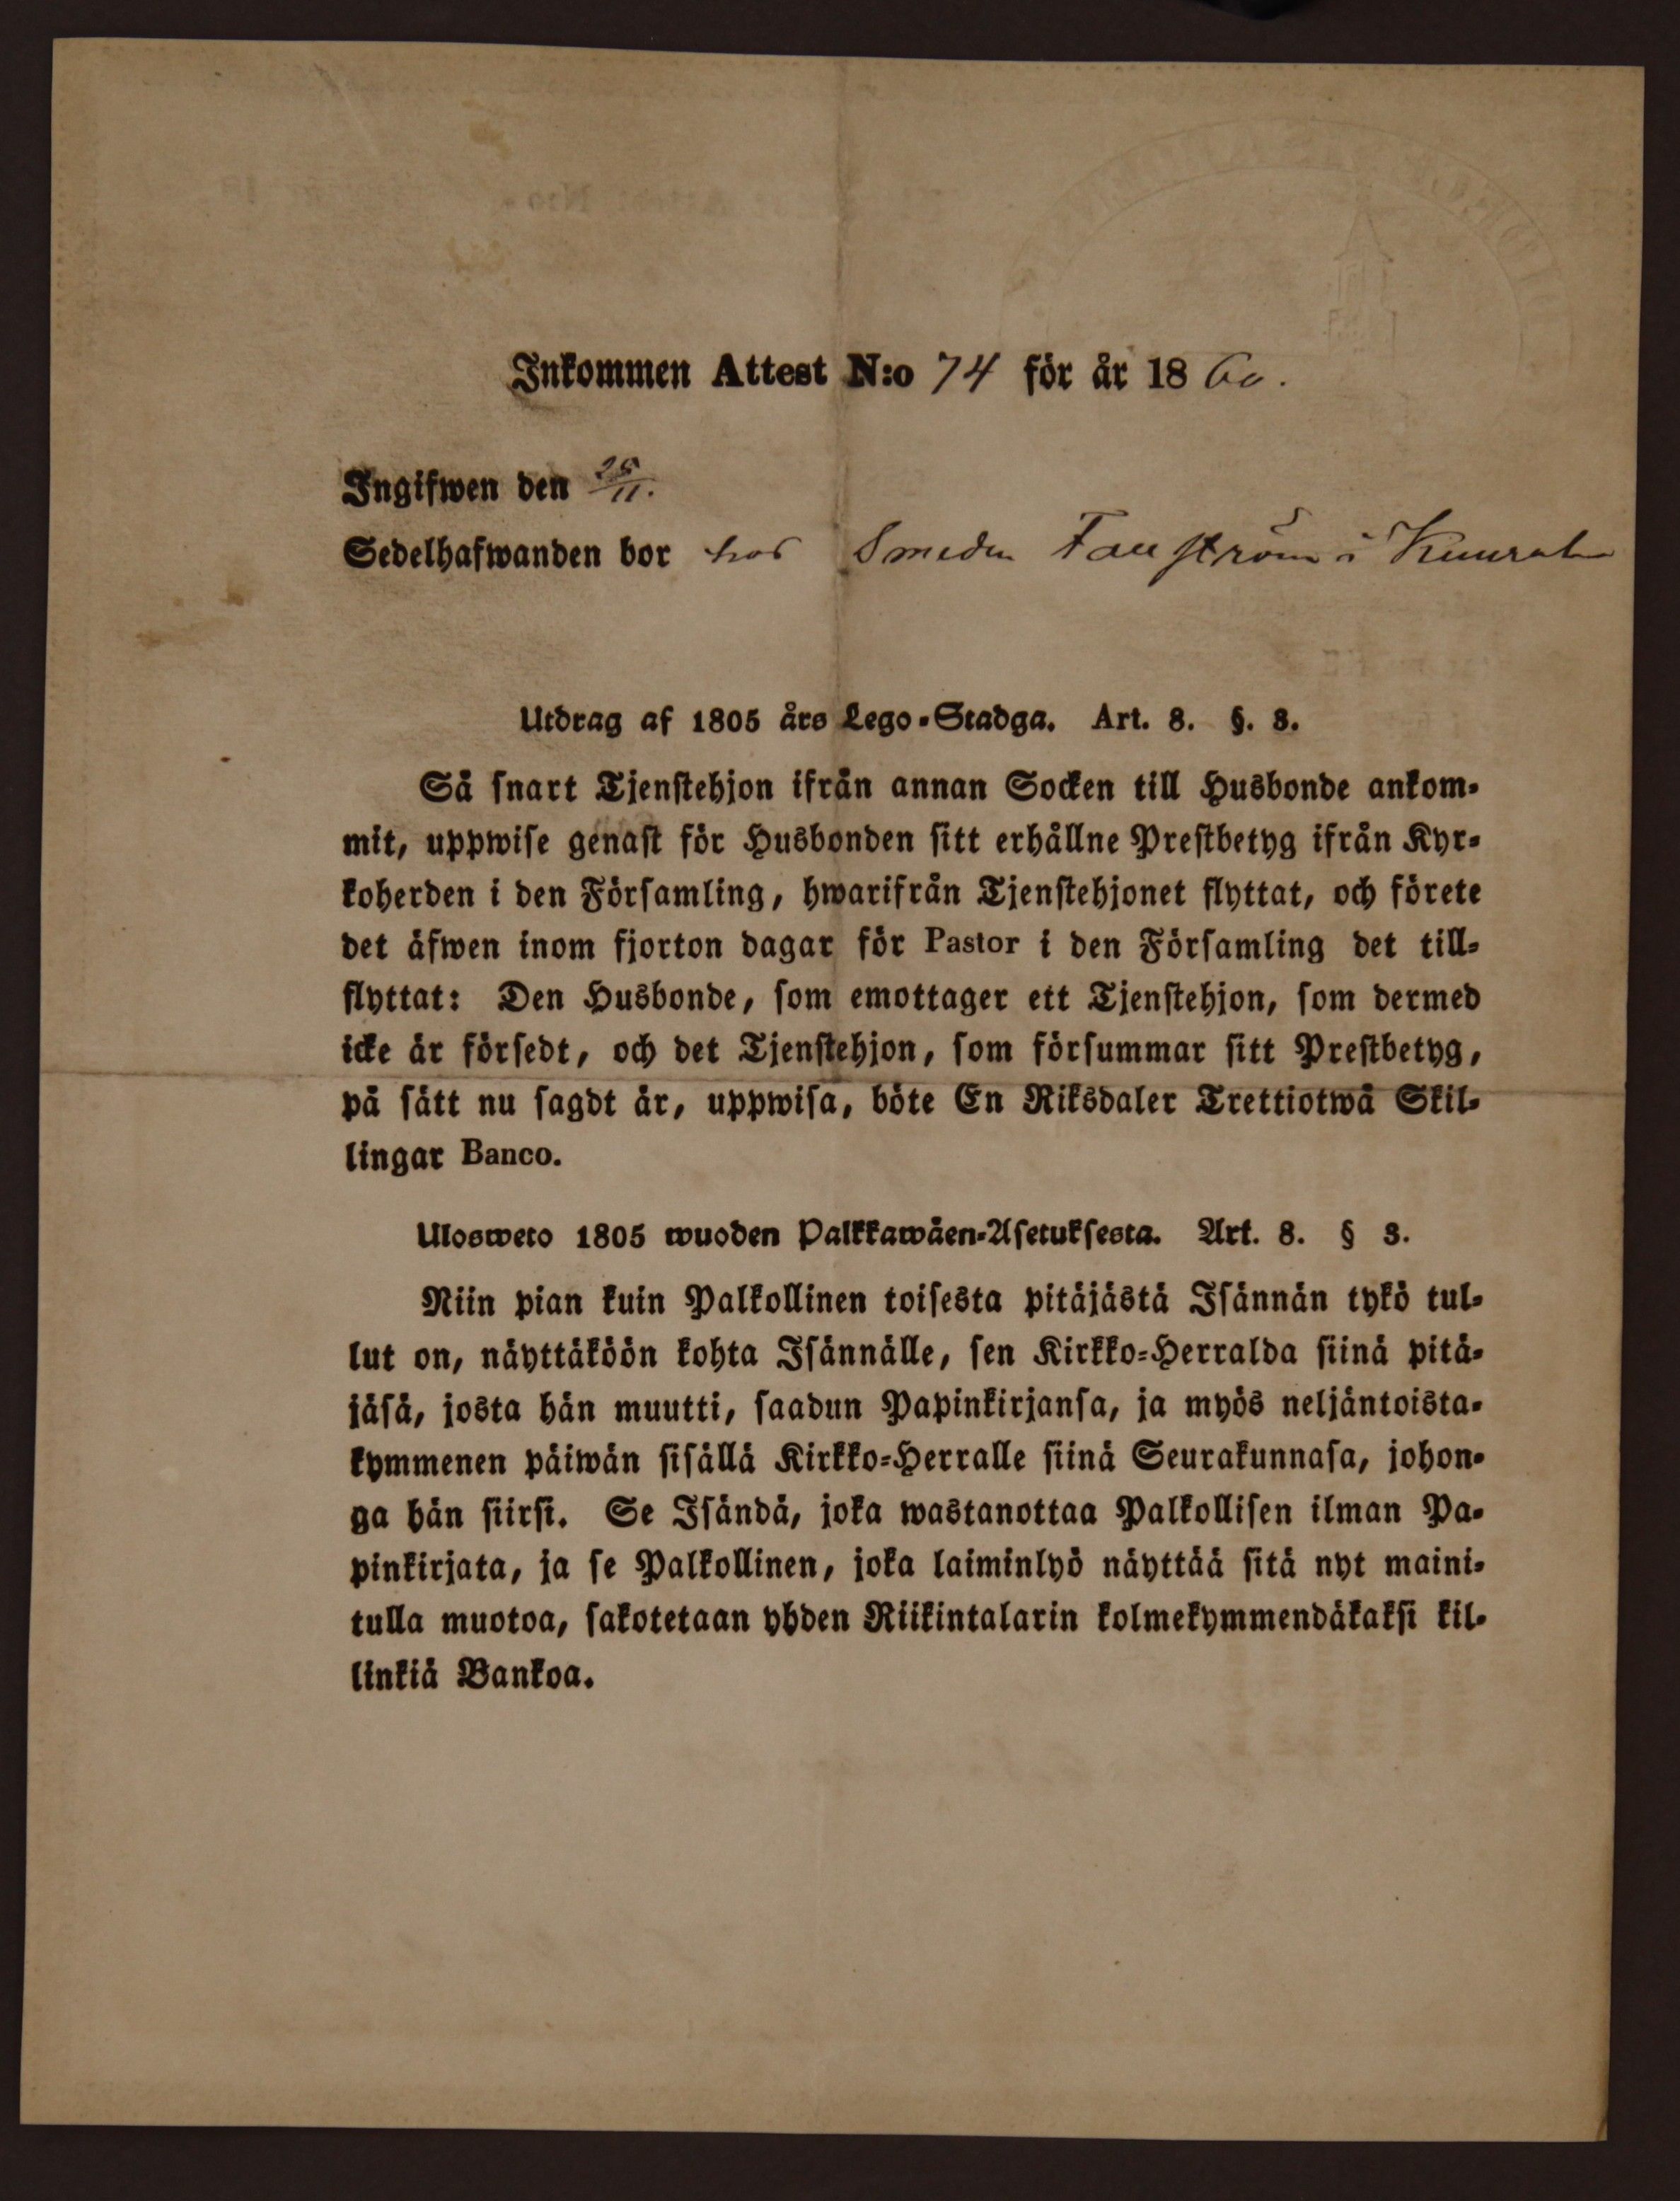 Inkommen Attest N:o 74 för år 1860.
Ingifwen den 25/11.
Sedelhafwanden bor hos Smeden i
Utdrag af 1805 års Lego-Stadga. Art. 8. §. 3.
Så snart Tjenstehjon ifrån annan Socken till Husbonde ankom-
mit, uppwise genast för Husbonden sitt erhållne Prestbetyg ifrån Kyr-
koherden i den Församling, hwarifrån Tjenstehjonet flyttat, och förete
det äfwen inom fjorton dagar för Pastor i den Församling det till-
flyttat: Den Husbonde, som emottager ett Tjenstehjon, som dermed
icke är försedt, och det Tjenstehjon, som försummar sitt Prestbetyg,
på sätt nu sagdt är, uppwisa, böte En Riksdaler Trettiotwå Skil-
lingar Banco.
Ulosweto 1805 wuoden Palkkawäen-Asetuksesta. Art. 8. § 3.
Niin pian kuin Palkollinen toisesta pitäjästä Isännän tykö tul-
lut on, näyttäköön kohta Isännälle, sen Kirkko-Herralda siinä pitä-
jäsä, josta hän muutti, saadun Papinkirjansa, ja myös neljäntoista-
kymmenen päiwän sisällä Kirkko-Herralle siinä Seurakunnasa, johon-
ga hän siirsi. Se Isändä, joka wastanottaa Palkollisen ilman Pa-
pinkirjata, ja se Palkollinen, joka laiminlyö näyttää sitä nyt maini-
tulla muotoa, sakotetaan yhden Riikintalarin kolmekymmendäkaksi kil-
linkiä Bankoa.